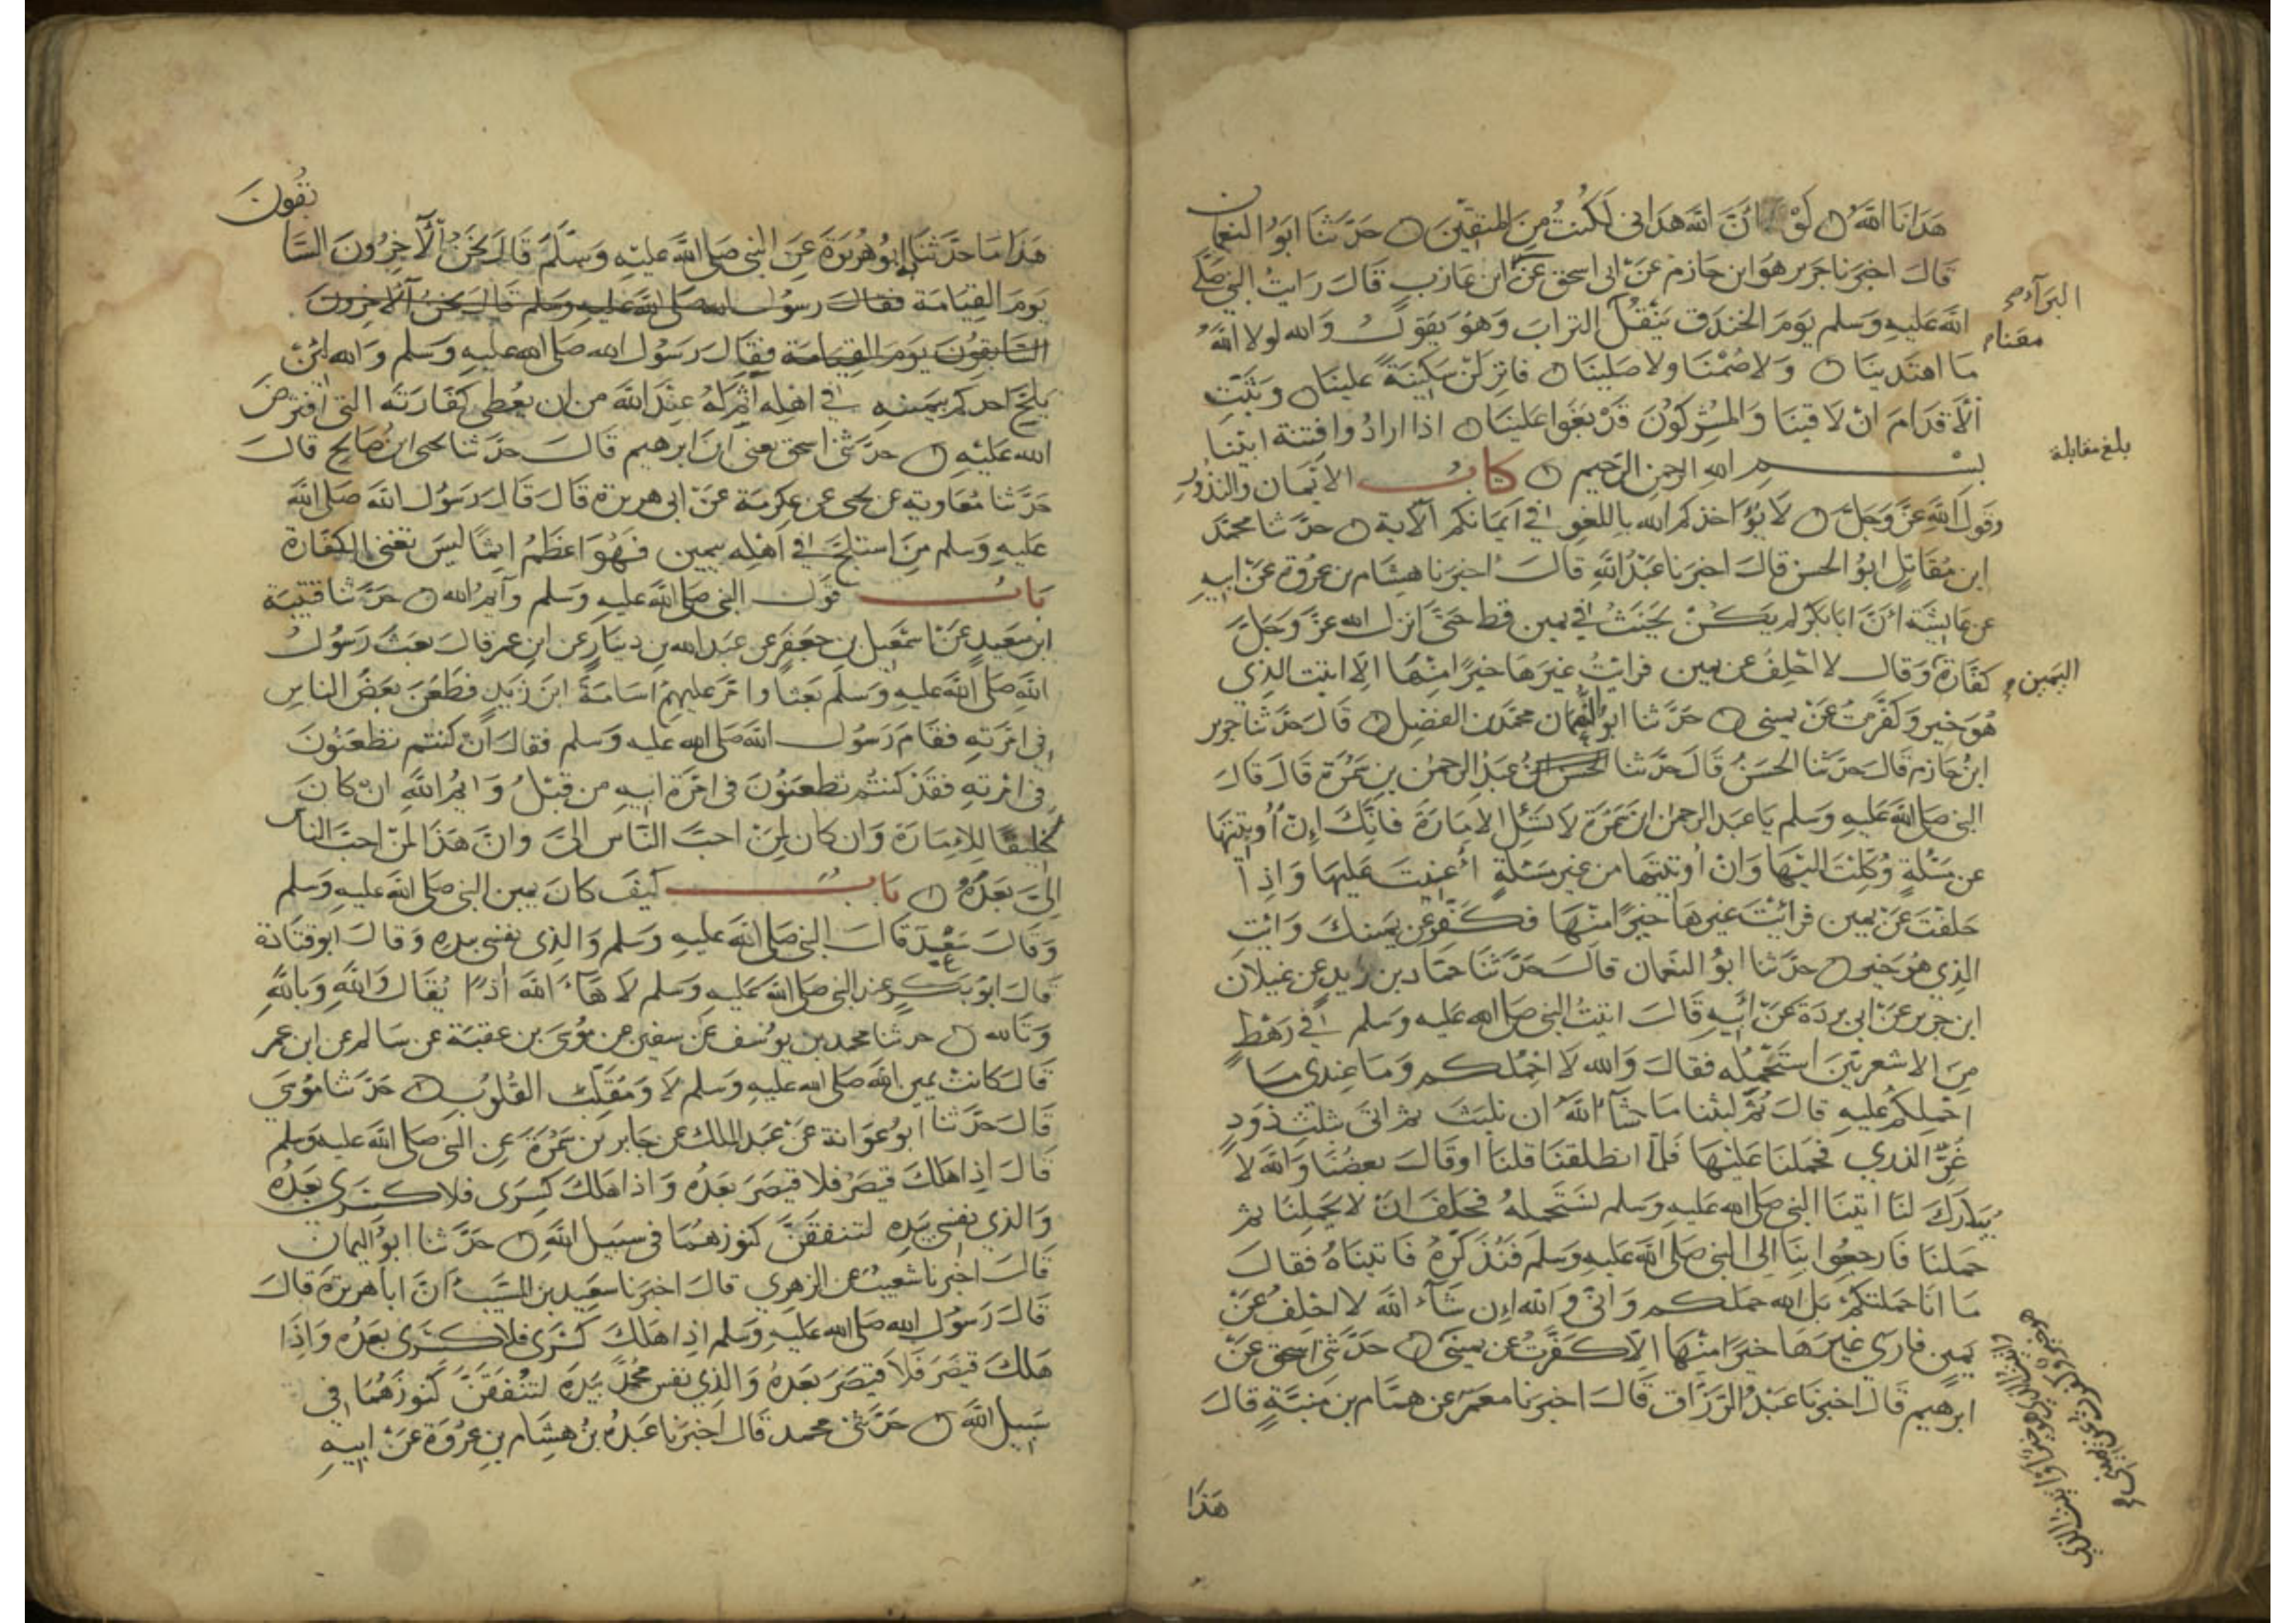 هَدَانَا اللَّهُ لَوْ أَنَّ اللَّهَ هَدَانِي لَكُنتُ مِنَ الْمُتَّقِينَ حَدَّثَنَا ابُو النعمان
قال اخبرنا جرير هو ابن حازم عن ابى اسحق عن ابن عازب قَالَ رَايتُ النبي صَلَّى
البرآء
الله عَليهِ وَسلم يَومَ الخندق يَنْقُلُ التراب وَهُوَ يَقولُ وَالله لولا اللهُ
معنا
ما اهتدينَا وَلا صُمْنَا ولا صَلينَا فانزلَنْ سَكِينَةً علينا وثَبّتِ
الأقدَامَ ان لاقينَا وَالمُشركُونَ قَدْ بَغَوا عَلينَا اذا ارادُوا فِتنة ابَيْنَا
بلغ مقابلة
بسم الله الرحمن الرحيم كتاب الايمان والنذور
وقول الله عَزَّ وَجَلَّ لا يُؤاخذكم الله باللغو في ايمَانكم الآية حدثنا محمَّد
ابن مُقَاتِلٍ ابُو الحسن قالَ اخبرنا عَبْدُ اللهِ قالَ اخبرنا هِشَام بن عُروة عَنْ ابيهِ
عن عَايشة أنَّ ابا بكر لم يكُنْ يَحْنَثُ في يمين قط حَتَّى انزل الله عزَّ وَجَلَّ
كفّارَةَ وَقال لا احْلِفُ عن يمين فرايْتُ غيرَهَا خيرًا منْهَا الا اتيت الذِي
اليمين
هُوَ خير وَكفّرتُ عَنْ يميني حدَّثنا ابوُ النُّعمان محمّد بن الفضل قَالَ حَدَّثنا جرير
ابنُ حَازم قَالَ حَدّثنا الحسَنُ قَالَ حَدَّثنا عَبْدُ الرحمٰن بن سَمُرَة قَالَ قالَ
النبي صَلى اللهُ عَليهِ وسلم يَا عَبد الرحمن ابنَ سَمُرَة لا تسْئَلِ الامَارَةَ فانَّكَ إِنْ أُوتِيتَهَا
عن مَسْئلةٍ وُكِلْتَ اليْهَا وَانْ اُوتيتها من غير مسئلةٍ اُعِنْتَ عَليهَا وَاذا
حَلفتَ عَنْ يمين فرايْتَ غيرهَا خيرًا منْهَا فكَفّرْ عن يمينكَ وَايتِ
الذي هُوَ خير حَدَّثنا ابوُ النعمان قالَ حَدَّثنَا حمّاد بن زيدٍ عن غيلان
ابن جرير عَنْ ابى بردَة عَنْ ابيهِ قَالَ اتيتُ النبي صَلى الله عليه وسلم في رَهْطٍ
مِنَ الاشعريّين اَسْتَحْمِلُه فقالَ وَالله لا احْمِلكم وَمَا عِندي مَا
احْمِلكُم عَليهِ قالَ ثُمَّ لبثنا مَا شَآءَ اللهُ ان نلبث ثم اتى بثلثِ ذَودٍ
غُرِّ الذري فحَملَنا عَليْهَا فَلَمّا انطلقنَا قلنَا اوقالَ بعضُنَا وَالله لا
يُبارَكُ لنَا اتينَا النبي صَلى الله عليه وسلم نستَحْملهُ فحَلفَ انْ لا يَحْمِلَنَا ثم
حَملنَا فَارجعُوا بنَا الى النبي صَلى الله عَليهِ وسلم فنُذكّرهُ فَاتيناهُ فقالَ
مَا انَا حَملتكُم بَل الله حَمَلكم وَانّي وَالله ان شَآءَ الله لا احلفُ عَنْ
يمين فارى غيرَهَا خيرًا منْهَا الّا كفّرتُ عن يميني حَدّثني اسحق عَنْ
ابرهيم قالَ اخبرنَا عَبْدُ الرّزَّاق قَالَ اخبرنَا معمَر عن همَّام بن مُنبّهٍ قالَ
هَذا
تقُونَ
هَذا مَا حَدّثنَا بهِ ابوُ هُريرَةَ عَنِ النبي صَلى الله عليهِ وَسَلَّم قَالَ نحَنُ الآخِرُونَ السَّا
يَومَ القِيَامَة فقالَ رسوُل الله صَلى الله عَليهِ وسلم قَالَ نحنُ الآخرون
السَّابقُونَ يَومَ القِيامَة فقالَ رَسوُل الله صَلى الله عليهِ وسلم وَالله لئن
يَلجَّ احدكم بيمينهِ في اهلِه آثمُ لَهُ عندَ الله من ان يُعْطي كفّارَتَه التي افترضَ
الله عَليْهِ حدّثنى اسحق يعنى ابنَ ابرهيم قَالَ حدّثنا يحيى ابنُ صَالح قالَ
حَدّثنا مُعَاوية عن يحيى عن عكرمَة عَنْ ابى هريرة قَالَ قَالَ رَسُول الله صَلى الله
عليهِ وسلم مَنِ استَلجَّ في اَهلِه بيمين فهُوَ اعظمُ اثمًا ليسَ تغنى الكفّارة
بَابُ قول النبي صلى الله عليهِ وَسَلم وآيمُ الله حَدّثنا قتيبَة
ابن سَعيدٍ عَنْ اسمعيل بن جَعفَر عن عَبد الله بن دينَارٍ عن ابن عمر قالَ بَعَثَ رَسُولُ
اللهِ صَلى الله عَليهِ وَسلم بَعثاً وامّر عَليهِمْ اُسَامَةَ ابنَ زيدٍ فطَعَنَ بَعضُ الناسِ
في امْرَتِهِ فقامَ رَسُول الله صَلى الله عليه وسلم فقالَ انْ كنتُم تطعَنُونَ
في امْرتهِ فقَدْ كنتُم تطعَنُوْنَ في امْرَة ابيهِ من قبْلُ وَايْمُ اللهِ ان كَانَ
لخليقًا للامَارَة وَان كانَ لمِنْ احبّ النّاس اليَّ وانَّ هَذَا لمنْ احبّ الناس
اليَّ بَعدَهُ بَابُ كيفَ كانَ يَمين النبي صَلى الله عليهِ وَسَلم
وقالَ سَعْد قالَ النبي صَلى الله عليهِ وسَلم وَالذي نفسي بيدِهِ وَقالَ ابو قتادة
قالَ ابوُ بكرٍ عند النبي صَلى الله عَليهِ وسلم لا هَآءَ الله اذًا يُقَال وَاللهِ وَباللهِ
وَتَالله حدثنا محمد بن يوسُف عَنْ سفين عن مُوسى بن عقبَة عن سَالم عن ابن عمر
قَالَ كانَتْ يمين الله صَلى الله عَليهِ وسلم لا وَمُقَلّبِ القُلوُب حَدّثنا مُوسَى
قَالَ حَدَّثنا ابوُ عَوَانة عَنْ عَبد الملك عن جَابر بن سَمُرَة عن النبي صَلى الله عليهِ وسلم
قالَ اذا هَلكَ قيصَرُ فلا قيصَرَ بَعدَهُ وَاذا هَلكَ كسِرَى فلا كسرَى بَعدَهُ
وَالذي نفسي بيَدِهِ لتنفقنَّ كنوُزهُمَا في سَبيل اللهِ حَدَّثنا ابوُ اليمان
قَالَ اخبرنا شعيبٌ عن الزهري قالَ اخبرَنا سَعِيدُ بن المسَيّب انَّ ابا هريرة قالَ
قالَ رَسُول الله صلى الله عليهِ وَسَلم اذا هَلكَ كسْرَى فلا كسْرَى بَعدَهُ وَاذَا
هَلكَ قيصَر فَلا قيصَرَ بَعدَهُ وَالذي نفسُ محُمّد بيَدِهِ لتُنْفَقَنَّ كنوُزَهُمَا في
سَبيل اللهِ حَدَّثني محمد قالَ اَخبرَنا عَبْدَةُ بنُ هِشَام بنِ عُروَة عَنْ ابيهِ